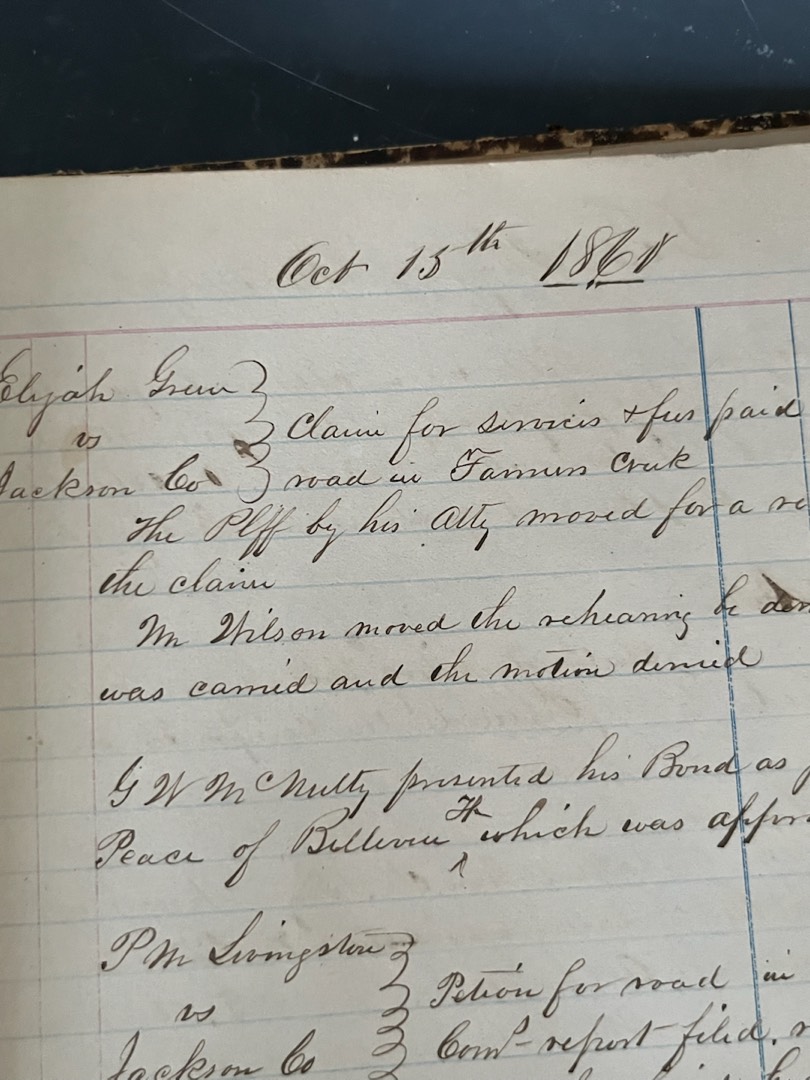 Oct 15th 1861
Elijah Green
vs
Jackson Co
Claim for services & fees paid
road in Farmers Creek
The Plff by his Atty moved for a re
the claim
Mr Wilson moved the rehearing be den
was carried and the motion denied
G W McNulty presented his Bond as
Peace of Bellevue Tp which was appro
P M Livingston
vs
Jackson Co
Petion for road in
Coms report filed.